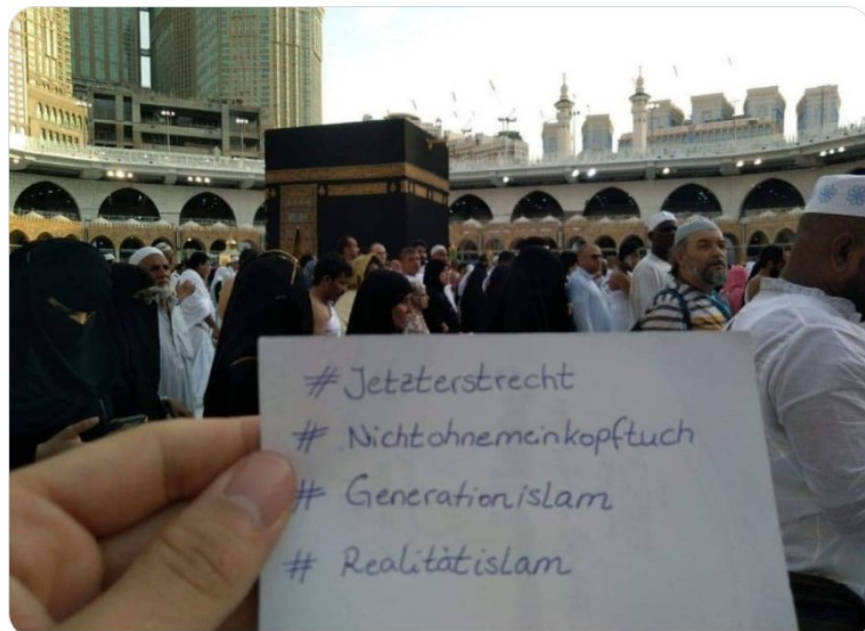 #Jetzterstrecht
# Nichtohnemeinkopftuch
# Generationislam
# Realitätislam